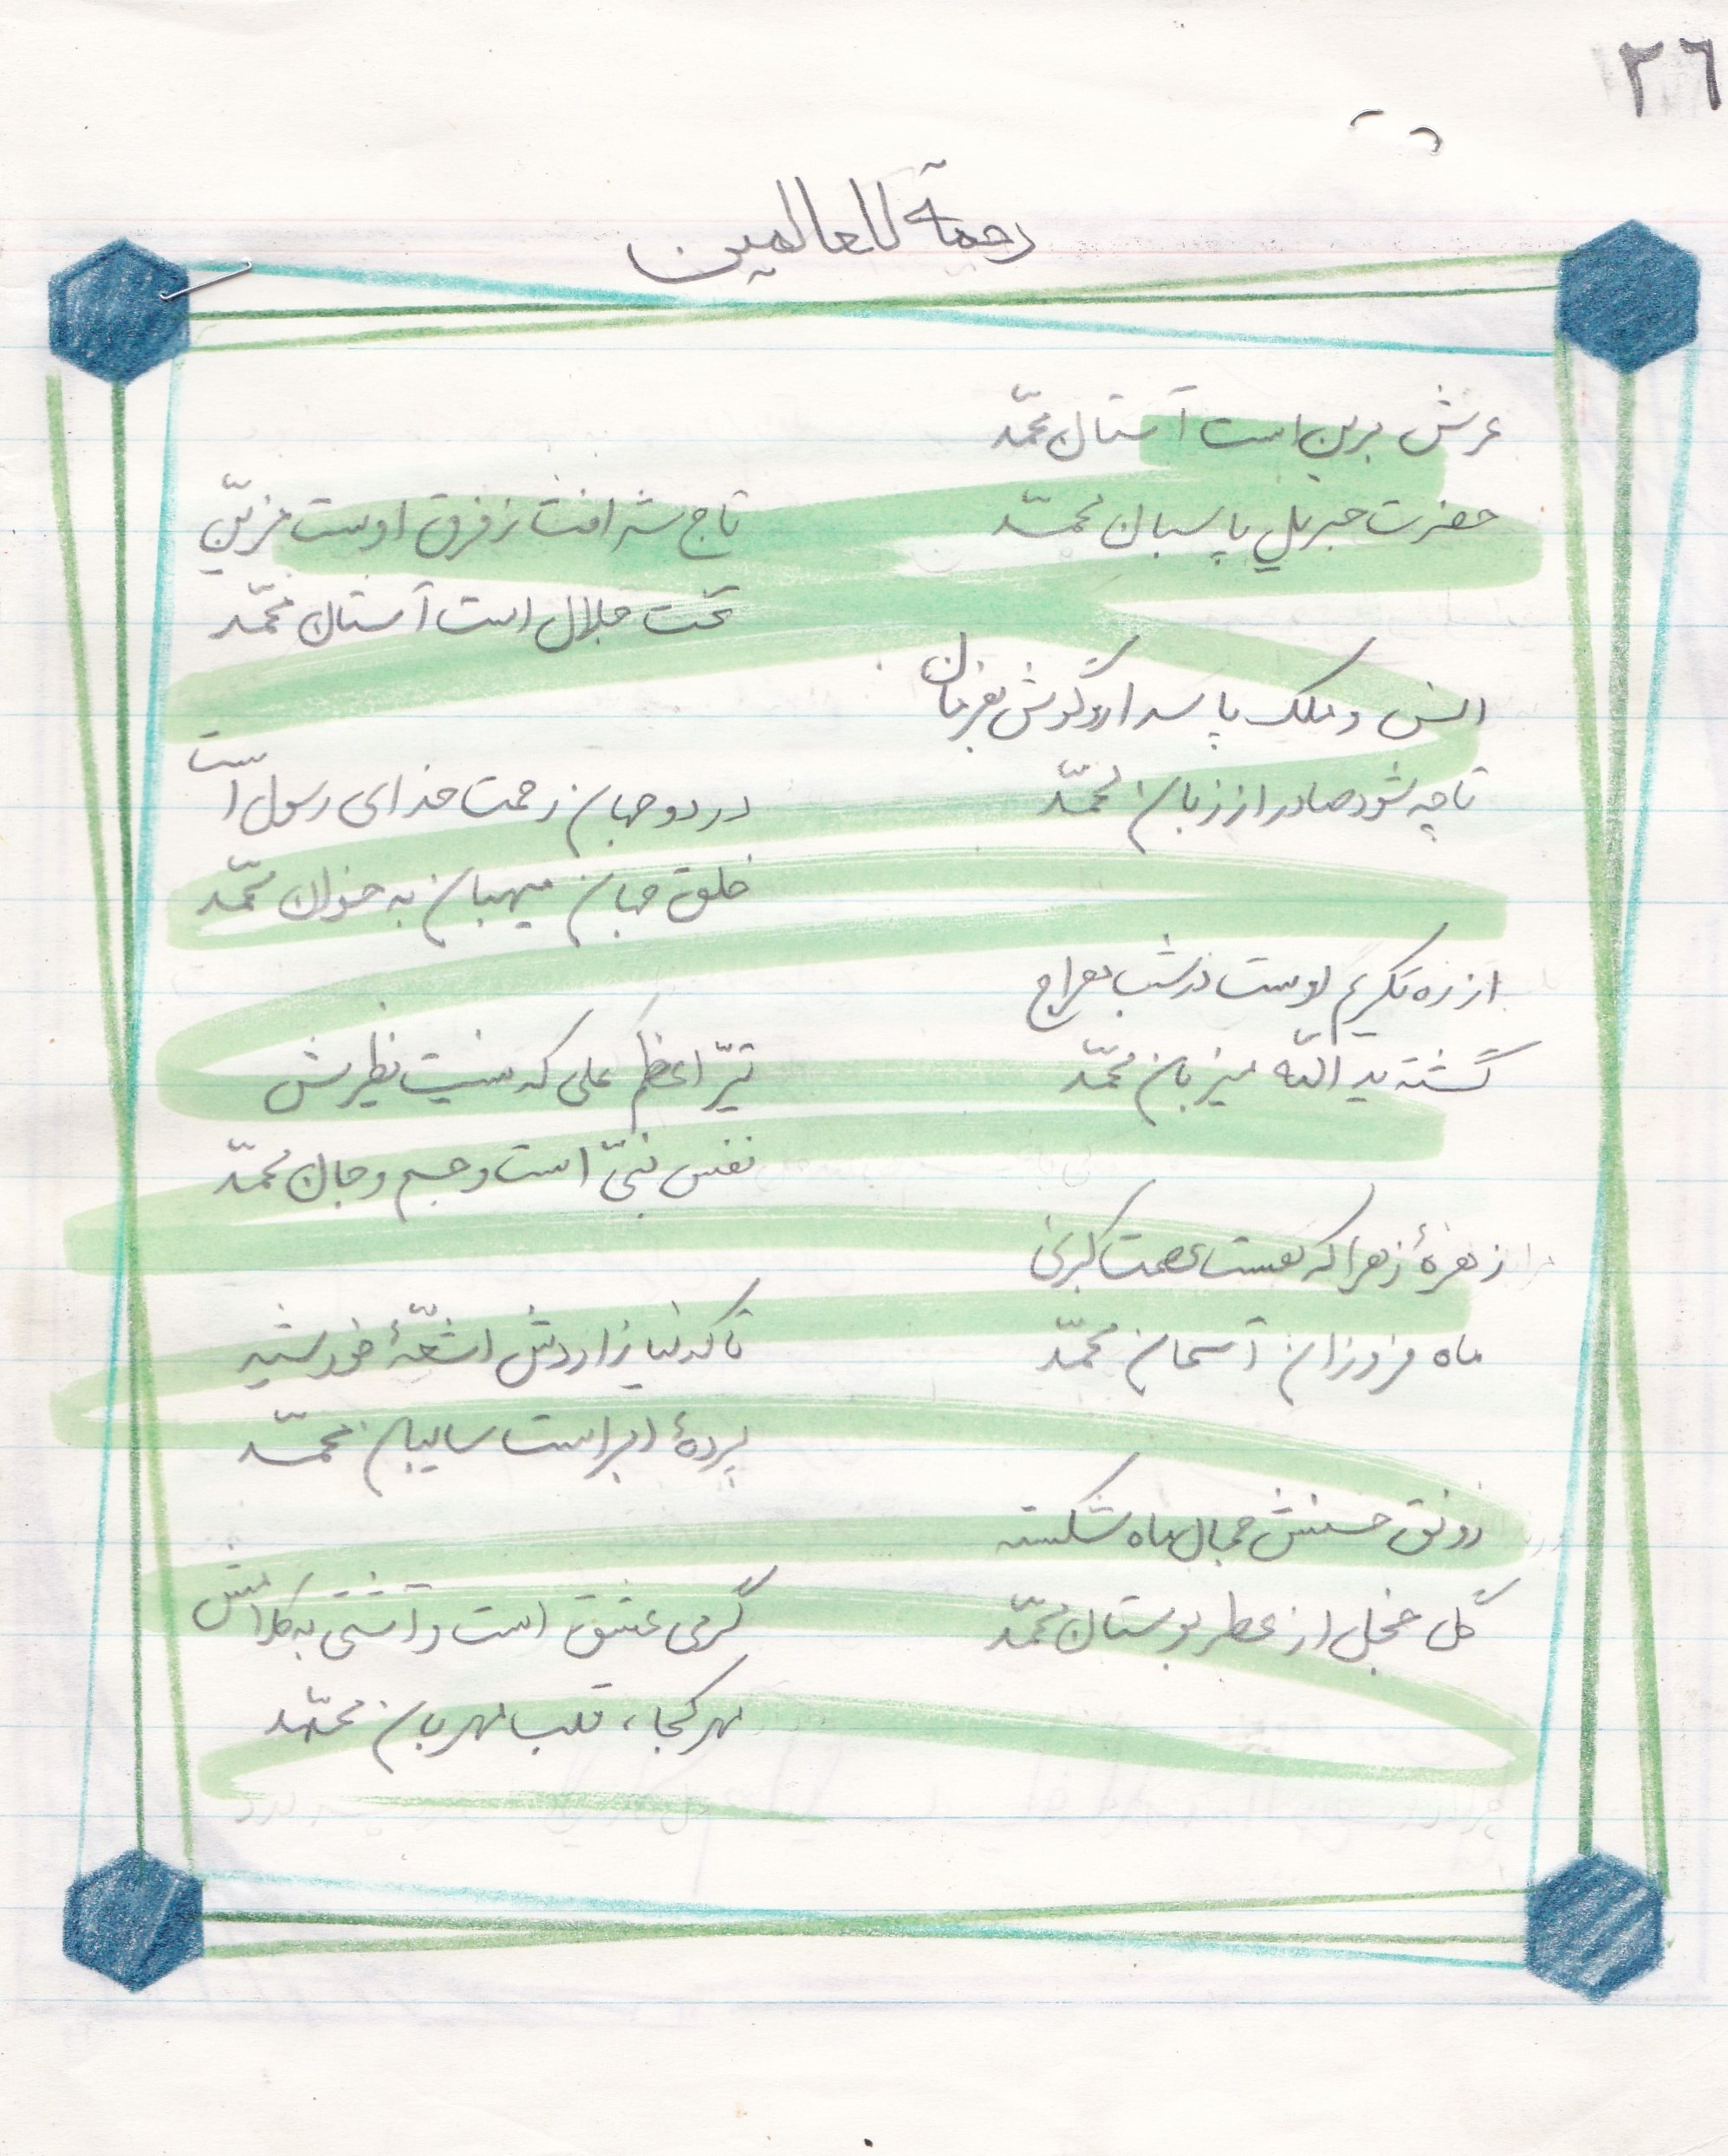 ٢٦
رحمة للعالمین
عرش برین است آستان محمّد
حضرت جبریل پاسبان محمّد
تاج شرافت ز فرق اوست مزیّن
تخت جلال است آستان محمّد
انس و ملک پاسدار و گوش بفرمان
تا چه شود صادر از زبان محمّد
در دو جهان رحمت خدای رسول است
خلق جهان میهمان به خوان محمّد
از ره تکریم اوست در شب معراج
گشته ید اللّه میزبان محمّد
نیّر اعظم علی که نیست نظیرش
نفس نبیّ است و جسم و جان محمّد
زهرهٔ زهرا که هست عصمت کبری
ماه فروزان آسمان محمّد
تا که نیازاردش اشعّهٔ خورشید
پردهٔ ابر است سایبان محمّد
رونق حسنش جمال ماه شکسته
گل خجل از عطر بوستان محمّد
گرمی عشق است و آشتی به کلامش
مهر کجا، قلب مهربان محمّد